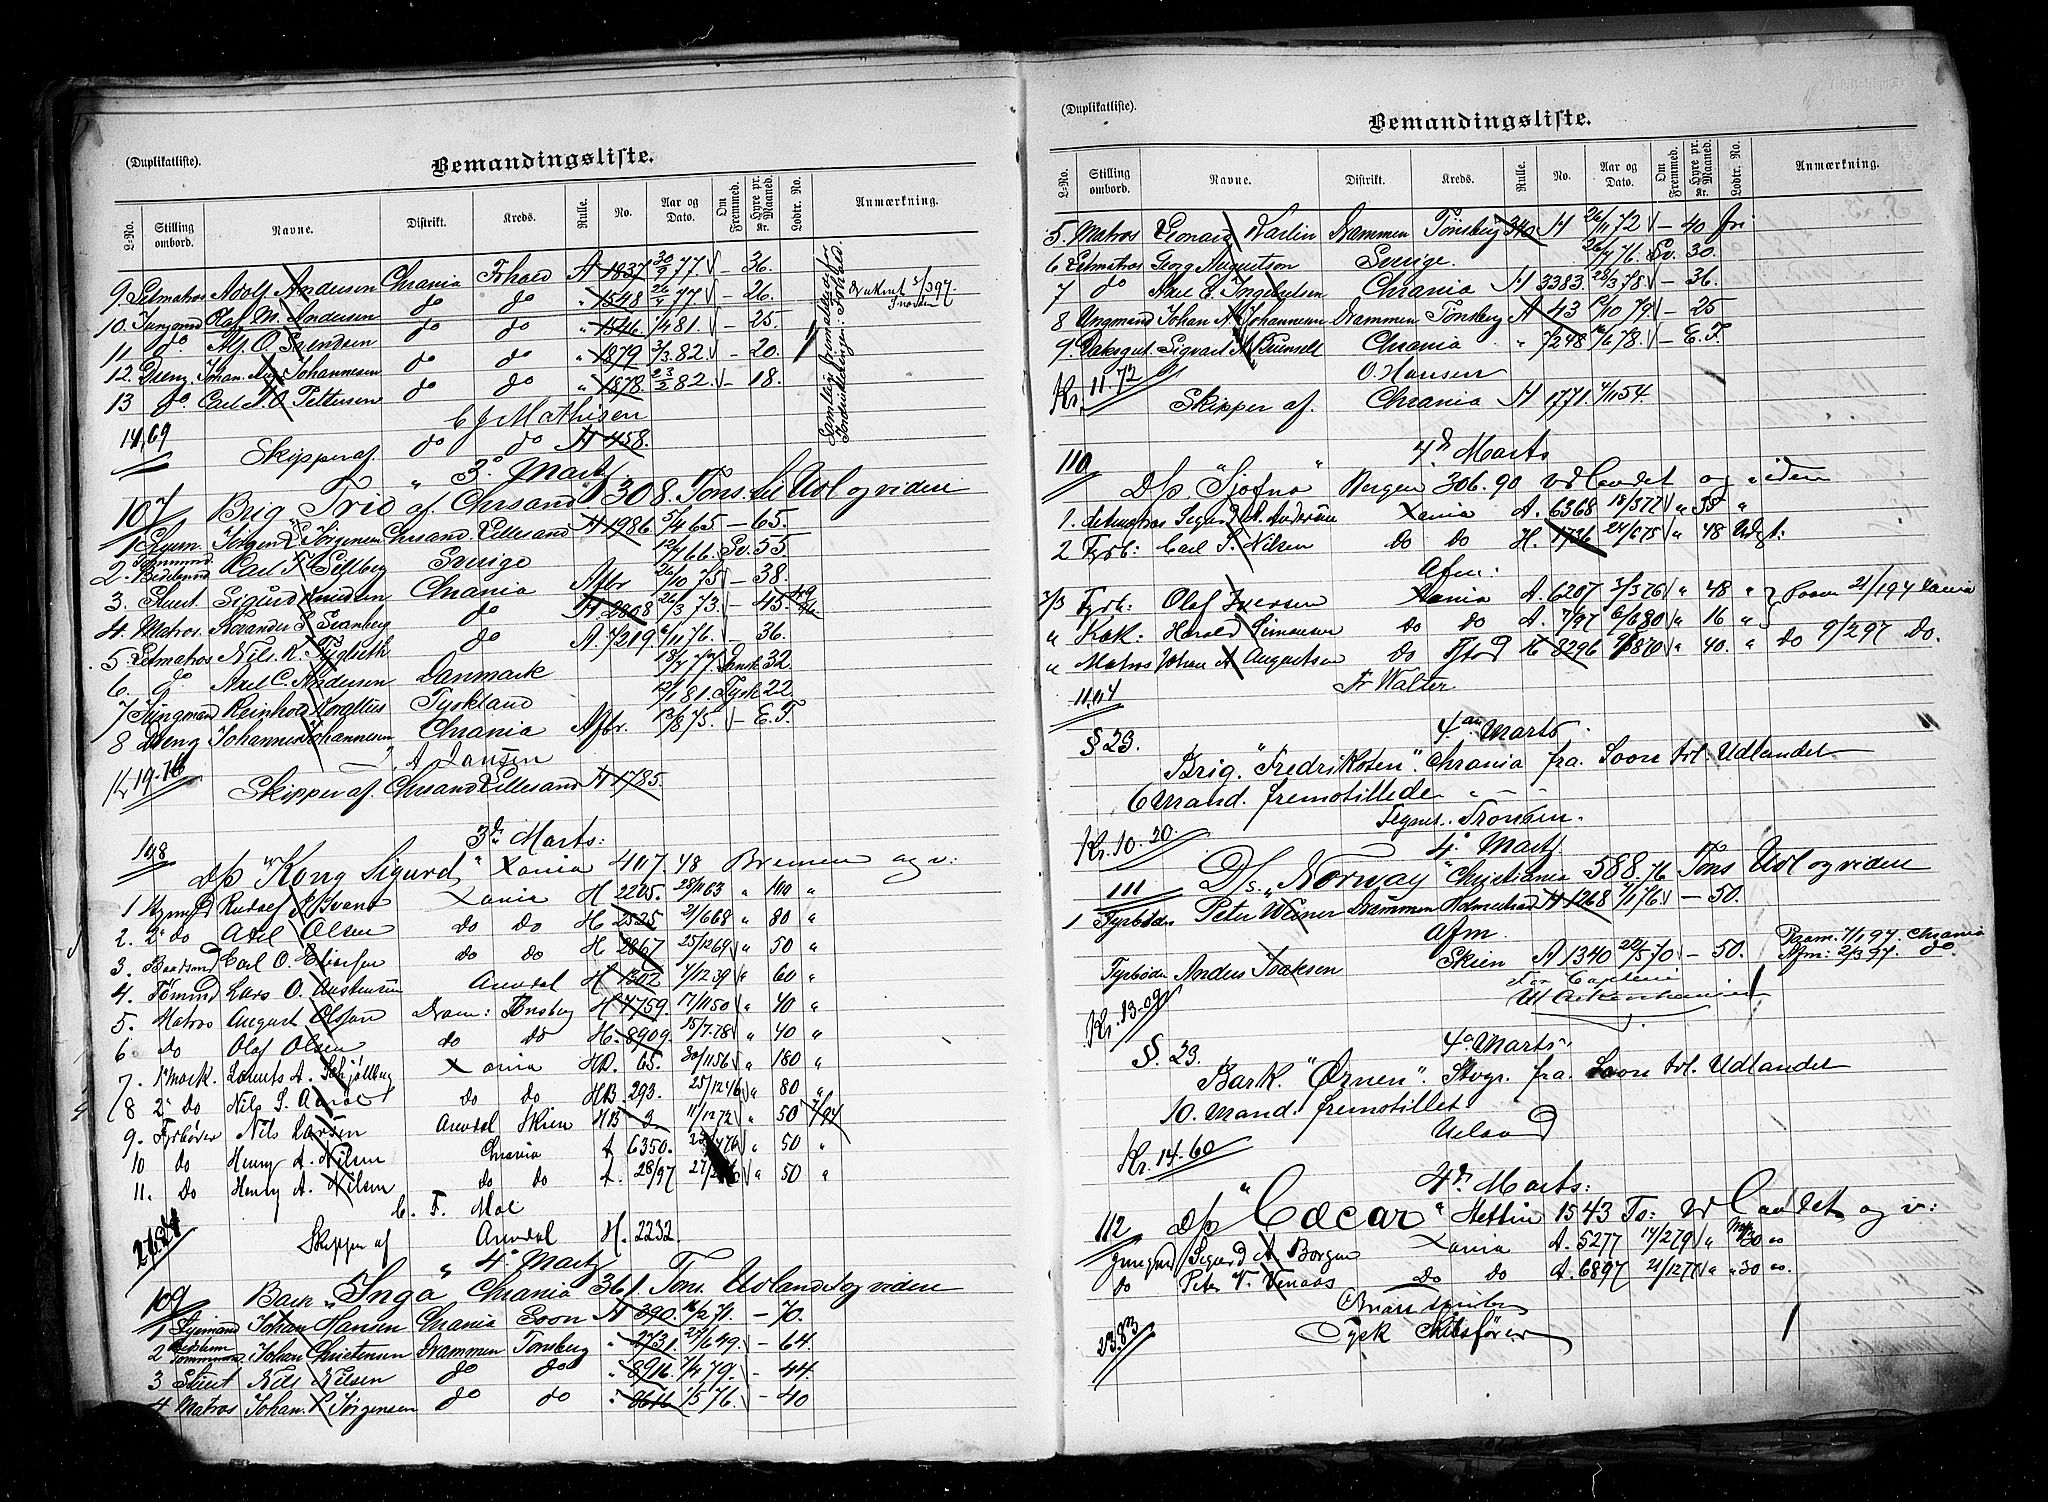 (Duplikatliste).
Bemandingsliste.
L-No. Stilling ombord. Navne. Distrikt. Kreds. Rulle. No. Aar og Dato. Om Fremmed. Hyre pr. Maaned. Kr. Lodtr. No. Anmærkning.
9. Letmatros Adolf Andersen Chrania Frhald A 1837 30/9 77 – 36.
10. Jungmd Olaf M. Andersen do do " 1548 26/ 77 – 26.
11 do. Alf. O. Svendsen do do " 1546 1/4 81 – 25.
12. Dreng. Johan Johannesen do do " 1879 3/3 82 – 20.
13 do. Carl A. O. Pettersen do do " 1878. 23/2 82. – 18.
C J Mathisen
14,69
Skipper af. do do A 458.
3die Marts
107 Brig "Trio" af Chrsand 308. Tons. til Udl og videre
1 Styrm. Jørgen L. Jørgensen Chrsand. Lillesand A 1986. 5/4 65 – 65.
2. Tømmermd Bedstmd Karl F. Sellberg Sverige 12/7 66. Sv. 55
3. Stuert Sigurd Knudsen Chrania Afbr 26/10 75 – 38.
4. Matros. Alexander S. Svanberg do H. 2208 26/3 73. – 45
5. Letmatros Nils. R. Fuglseth do A. 7219 6/11 76. – 36.
6. do. Axel C. Andersen Danmark 18/7 77. Dansk 32
7 Jungmand Reinhold Tyskland 12/1 81. Tysk 22
8 Dreng Johannes Johannesen Chrania Afbr. 13/8 75. – E. T.
A Jansen
Kr 19.76
Skipper af. Chrsand Lillesand A 1785.
3de Marts:
108
D/s "Kong Sigurd" Xania 407.48 Bremen og v:
1 Styrmd Rudolf Xania H 2205. 25/11 63 " 100 "
2. 2' do Axel Olsen do do H 2525 2/6 68 " 80 "
3. Baadsmd Carl O. do do H 2867 25/12 69 " 50 "
4. Tømmd Lars O. Austensen Arendal H 1302 7/12 39 " 60 "
5. Matros August Olsson Dram: Tønsberg H 4759 17/11 50 " 40 "
6 do Olaf Olsen do do H. 8909. 15/7 78 " 40 "
7. 1' Mask. Laurits A. Schjølberg Xania HD. 65. 30/11 56 " 180 "
8 2' do Nils S. do do HB 293. 25/12 46 " 80 "
9. Fyrbøder Nils Larsen Arendal Skien HB 3 11/12 72 " 50
10 do Henry A. Nilsen Chrania A 6350. " 50 "
11. do Henry A. Nilsen do do A. 28/97 " 50 "
C. F. Moe
Skipper af Arendal H. 2232.
27.24
4de Marts
109 Bark "Inga" Chrania 361 Tons. Udlandet og videre
1 Styrmand Johan Hansen Chrania Soon A 390. 16/2 71. – 70.
2 Bedstm Tømmerm Johan Christensen Drammen Tønsberg " 2731 27/6 49. – 64.
3 Stuert Nils Nilsen do do " 8916 7/4 79. – 44.
4 Matros Johan. L. Jørgensen do do " 8646 1/5 76. – 40
(Duplikatliste).
Bemandingsliste.
L-No. Stilling ombord. Navne. Distrikt. Kreds. Rulle. No. Aar og Dato. Om Fremmed. Hyre pr. Maaned. Kr. Lodtr. No. Anmærkning.
5. Matros Leonard Karlin Drammen Tönsberg H 26/11 72 – 40 fri
6 Letmatros Georg Augustson Sverige. 26/7 76. Sv. 30.
7 do Axel E. Ingebretsen Chrania H 3383. 28/3 78. – 36.
8 Ungmand Johan A. Johannesen Drammen Tønsberg A 43 12/10 79 – 25
9. Dæksgut. Sigvart A. Brunsell Chrania " 7248 16/6 78. – E. T.
O. Hansen
Kr. 11.72
Skipper af. Chrania H 1771. 4/11 54.
110 4de Marts
D/s. "Sjofna" Bergen 306.90 Udlandet og viden
1. Letmatros Sigurd A. Andersen Xania A. 6368 18/3 77 " 35 "
2 Fyrb: Carl S. Nilsen do do H. 1736 24/6 75 " 48 Udgt:
Afm:
3/3 Fyrb: Olaf Iversen Xania A. 6207 3/3 76 " 48 " Paam 21/1 97 Xania
" Kok: Harald Simonsen do do A. 7/97 6/6 80 " 16 "
" Matros Johan A Augustsen do Fjrd H 8296 9/8 70 " 40. " do 9/2 97 do.
Fr Walter
11.04
§ 23. 4de Marts.
Brig. "Fredriksten". Chrania fra. Soon tvl. Udlandet
6 Mand. fremstillede
Sigurt. Tronsen.
Kr. 10.20.
4. Marts
111 D/s. "Norway" Christiania 588.76 Tons Udl og videre
1 Fyrbøder Peter Weiner Drammen Holmestrand H 1268 7/1 76. – 50.
Afm.
Fyrbøder Anders Isaksen Skien A 1340 20/5 70 – 50. Paam. 7/1 97. Chrania
Afm: 2/3 97. do.
For Captein
Kr. 13.09
§. 23. 4de Marts
Bark. "Ørnen". Stvgr. fra. Soon tvl. Udlandet
10. Mand. fremstillet
Ueland
Kr. 14.60
4de Marts:
112 D/s "Cæcar" Stettin 1543 To: Udlandet og v:
Jungmd Sigurd A Borgen Xania A. 5277 14/2 79 " Mk 30 "
do Peter V. Venaas do do A. 6897 21/12 77 " " 30 "
Tysk Skibsfører
23.83